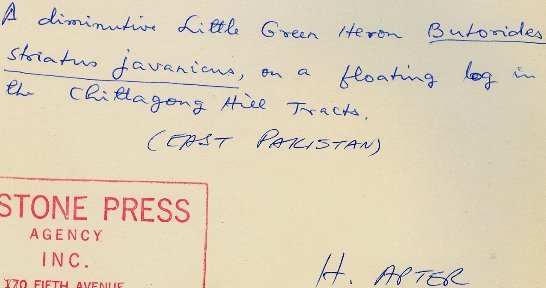 A diminutive Little Green Heron Butorides
striatus javanicus, on a floating log in
the Chittagong Hill Tracts.
(EAST PAKISTAN)
STONE PRESS
AGENCY
INC.
170 FIFTH AVENUE
H. APTER